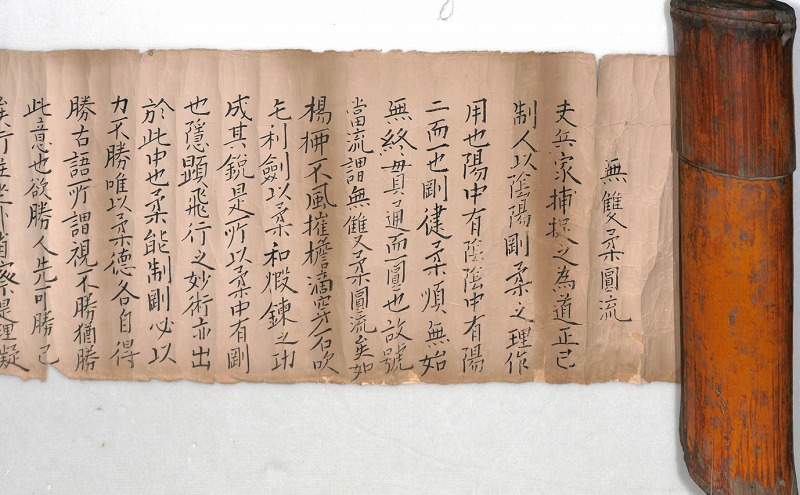 無雙柔圓流
夫兵家捕捉之為道正己
制人以陰陽剛柔之理作
用也陽中有陰陰中有陽
二而一也剛健柔順無始
無終貫通而一圓也故號
當流謂無雙柔圓流矣如
楊柳不風摧檐滴穿石吹
毛利劍以柔和煅鍊之功
成其銳是所以柔中有剛
也隱顯飛行之妙術亦出
於此中也柔能制剛必以
力不勝唯以柔德各自得
勝古語所謂視不勝猶勝
此意也欲勝人先可勝己
矣行住坐臥省察是理凝